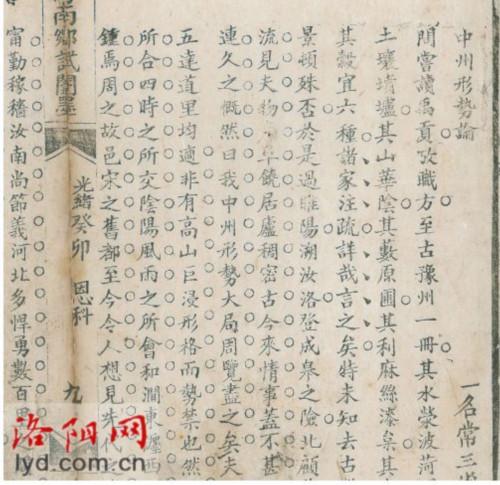 中州形勢論
一名常三
閒嘗讀禹貢攷職方至古豫州一冊其水滎波菏
土壤墳壚其山華陰其藪原圃其利麻絲漆枲其
其穀宜六種諸家注疏詳哉言之矣特未知去古
景頓殊否於是過睢陽溯汝洛登成皋之險北顧
流見夫物阜饒居廬稠密古今來情事蓋不甚
連久之慨然曰我中州形勢大局周覽盡之矣夫
五達道里均適非有高山巨浸形格而勢禁也然
所合四時之所交陰陽風雨之所會和澗東瀍西
鍾焉周之故邑宋之舊都至今令人想見先代之
南鄉試闈墨
光緒癸卯 恩科
九
甯勤稼穡汝南尚節義河北多悍勇數百里
洛阳网
lyd.com.cn